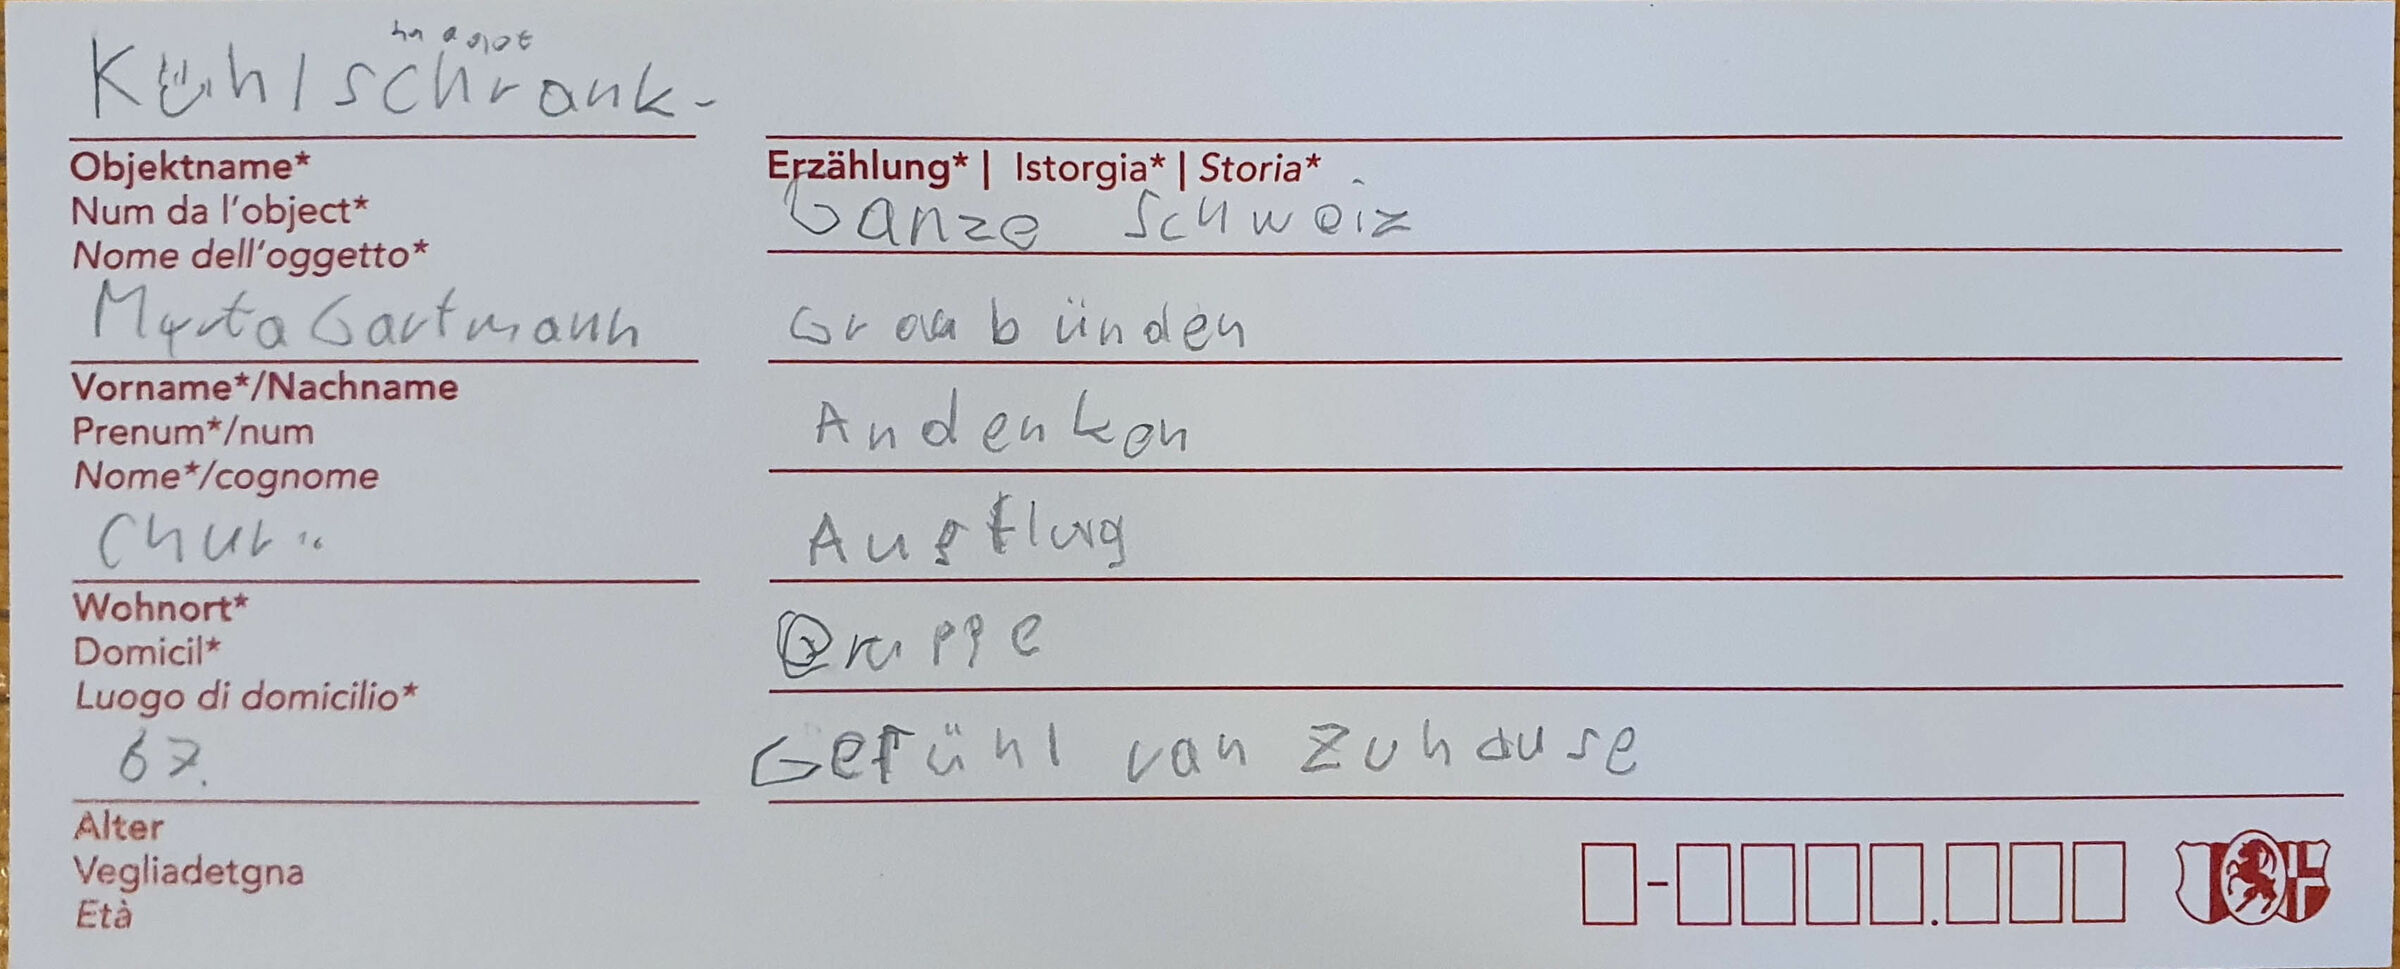 magnet
Kühlschrank-
Objektname*
Num da l'object*
Nome dell'oggetto*
Myrta Gartmann
Vorname*/Nachname
Prenum*/num
Nome*/cognome
Chur
Wohnort*
Domicil*
Luogo di domicilio*
67.
Alter
Vegliadetgna
Età
Erzählung* | Istorgia* | Storia*
Ganze Schweiz
Graubünden
Andenken
Ausflug
Gruppe
Gefühl von Zuhause